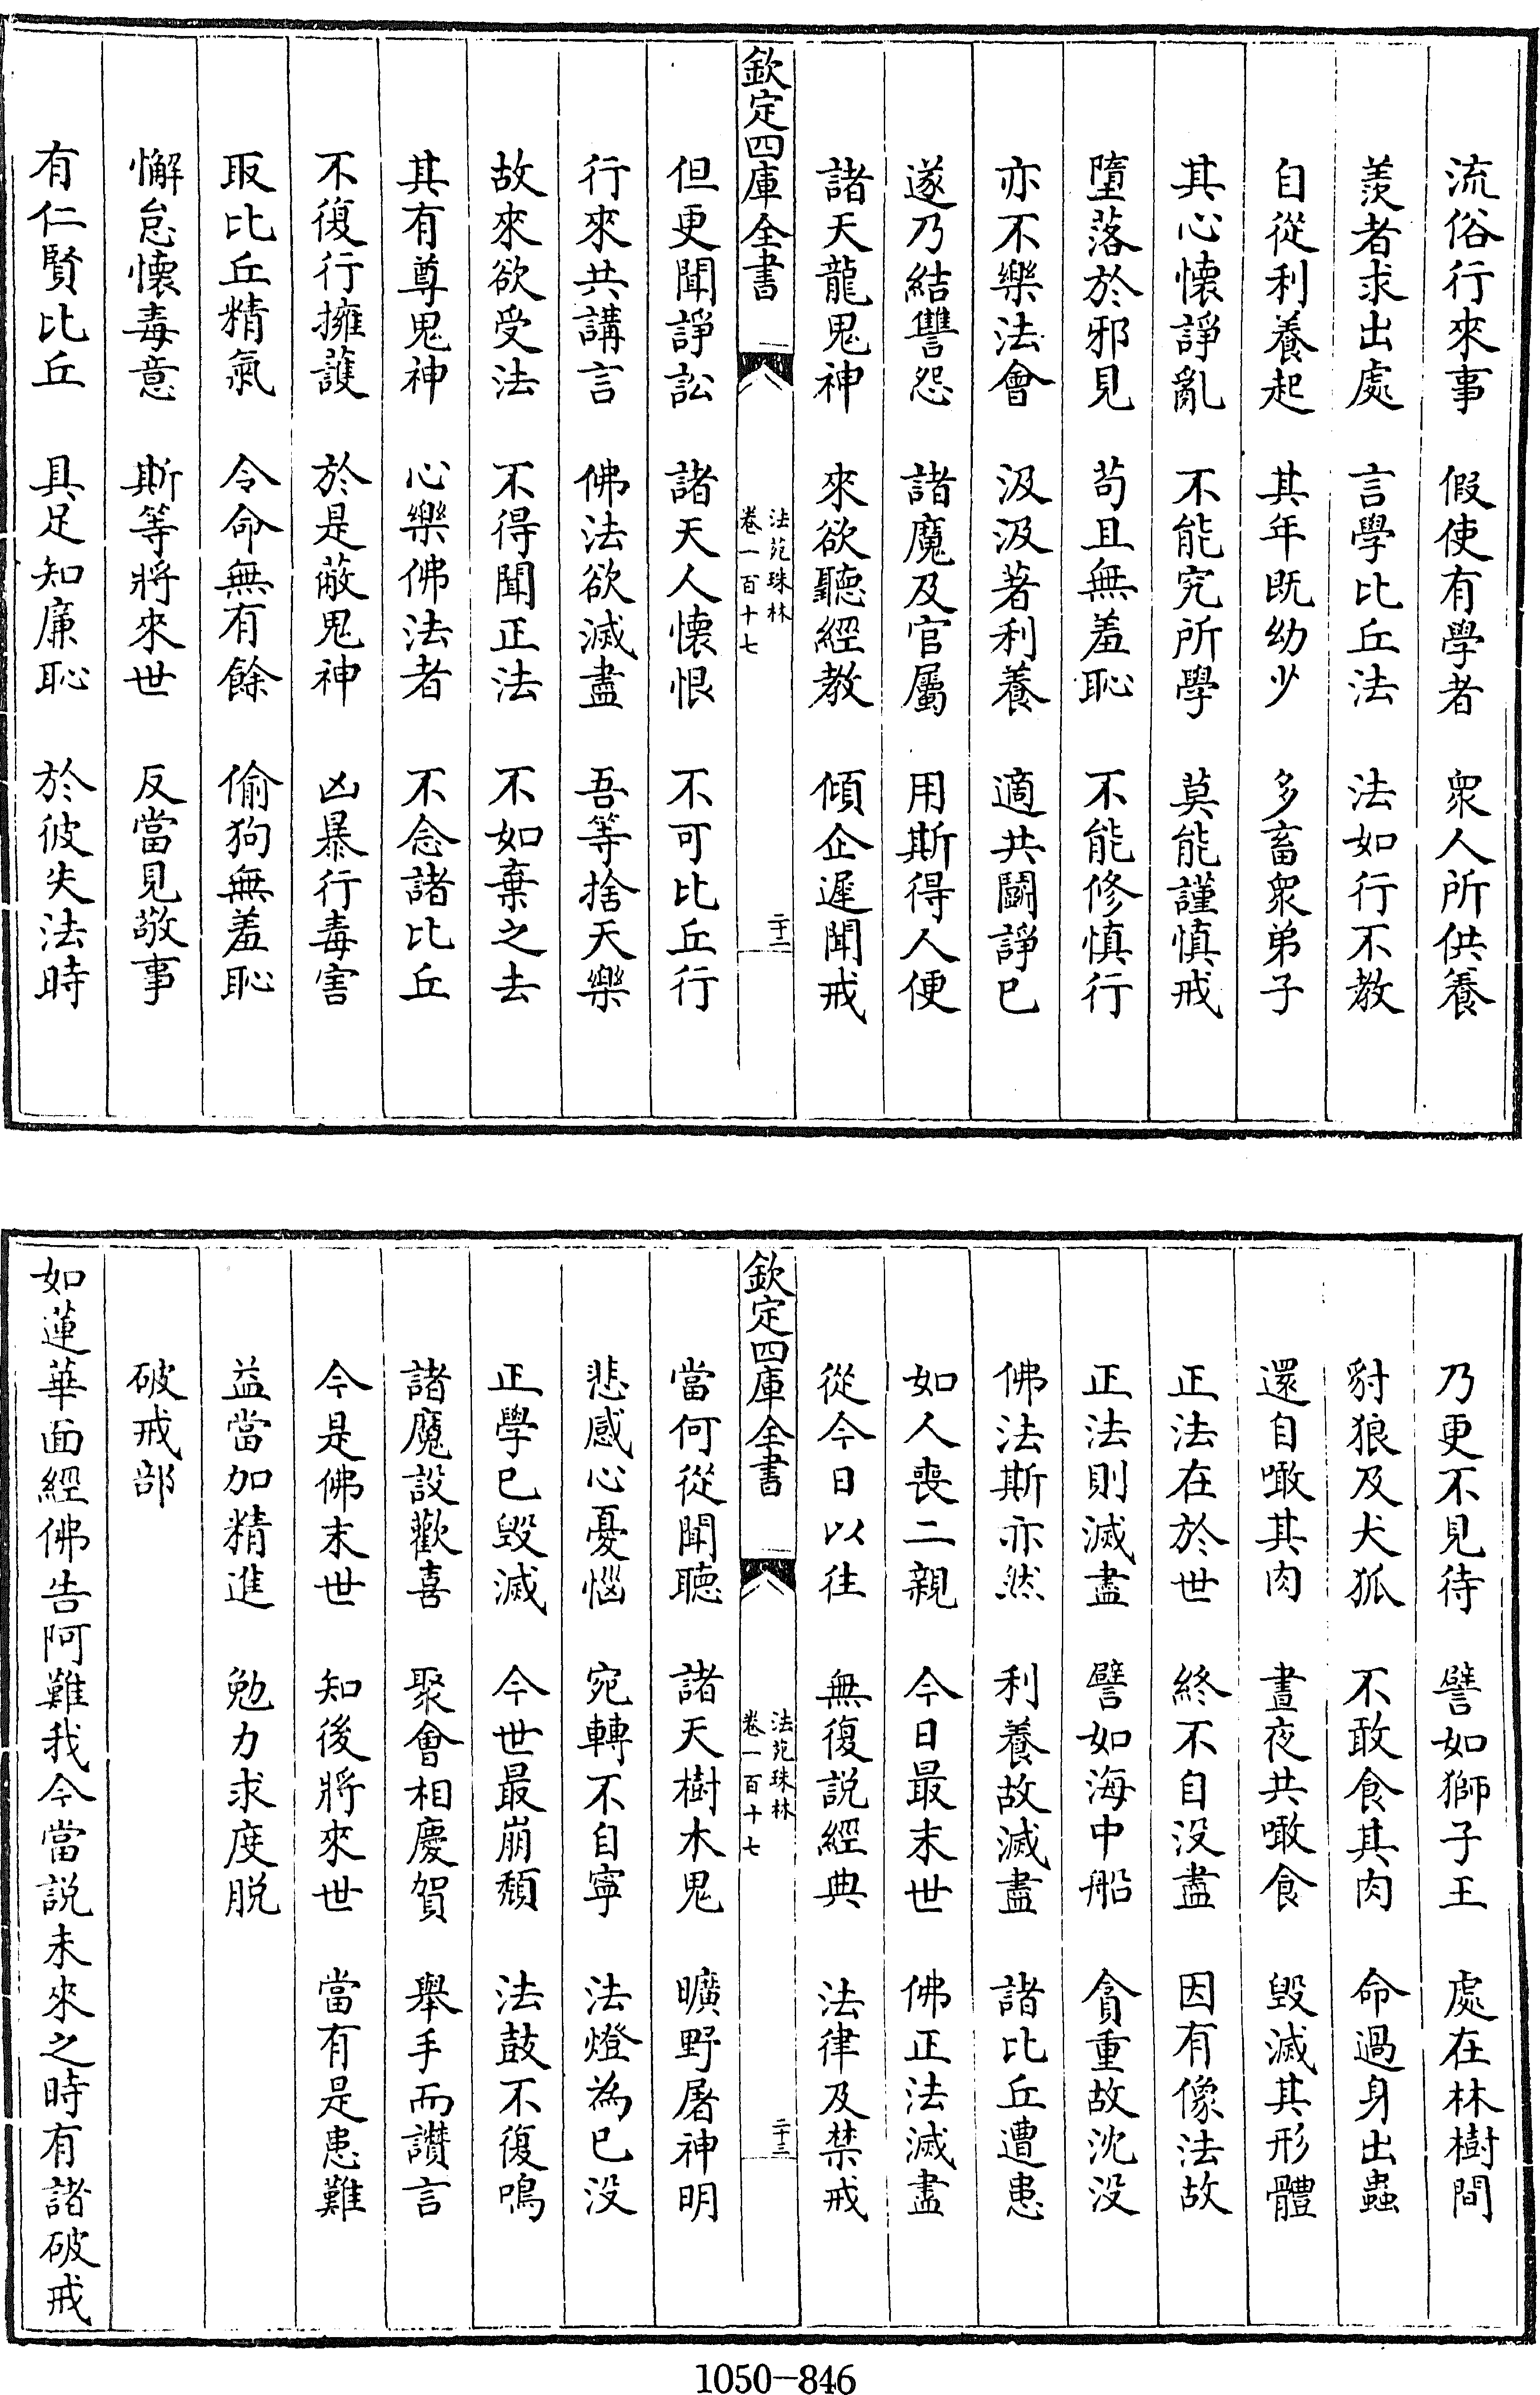 流俗行來事　假使有學者　衆人所供養
羡者求出處　言學比丘法　法如行不教
自從利養起　其年既幼少　多畜衆弟子
其心懷諍亂　不能究所學　莫能謹慎戒
墮落於邪見　苟且無羞恥　不能修慎行
亦不樂法會　汲汲著利養　適共鬭諍已
遂乃結讐怨　諸魔及官屬　用斯得人便
諸天龍鬼神　來欲聽經教　傾企遲聞戒
欽定四庫全書　法苑珠林卷一百十七　二十二
但更聞諍訟　諸天人懷恨　不可比丘行
行來共講言　佛法欲滅盡　吾等捨天樂
故來欲受法　不得聞正法　不如棄之去
其有尊鬼神　心樂佛法者　不念諸比丘
不復行擁護　於是蔽鬼神　凶暴行毒害
取比丘精氣　令命無有餘　偷狗無羞恥
懈怠懷毒意　斯等將來世　反當見敬事
有仁賢比丘　具足知廉恥　於彼失法時
乃更不見待　譬如獅子王　處在林樹間
豺狼及犬狐　不敢食其肉　命過身出蟲
還自噉其肉　晝夜共噉食　毀滅其形體
正法在於世　終不自没盡　因有像法故
正法則滅盡　譬如海中船　貪重故沈没
佛法斯亦然　利養故滅盡　諸比丘遭患
如人喪二親　今日最末世　佛正法滅盡
從今日以往　無復説經典　法律及禁戒
欽定四庫全書　法苑珠林卷一百十七　二十三
當何從聞聽　諸天樹木鬼　曠野屠神明
悲感心憂惱　宛轉不自寧　法燈為已没
正學已毀滅　今世最崩頽　法鼓不復鳴
諸魔設歡喜　聚會相慶賀　舉手而讃言
今是佛末世　知後將來世　當有是患難
益當加精進　勉力求度脱
破戒部
如蓮華面經佛告阿難我今當説未來之時有諸破戒
1050-846